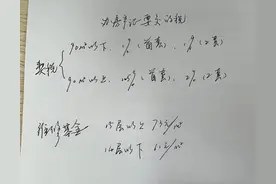 办房产证要交的税
契税
90m²以下、1%(首套)、1%(2套)
90m²以上、1.5%(首套)、2%(2套)
维修基金 15层以上 75元/m²
以下